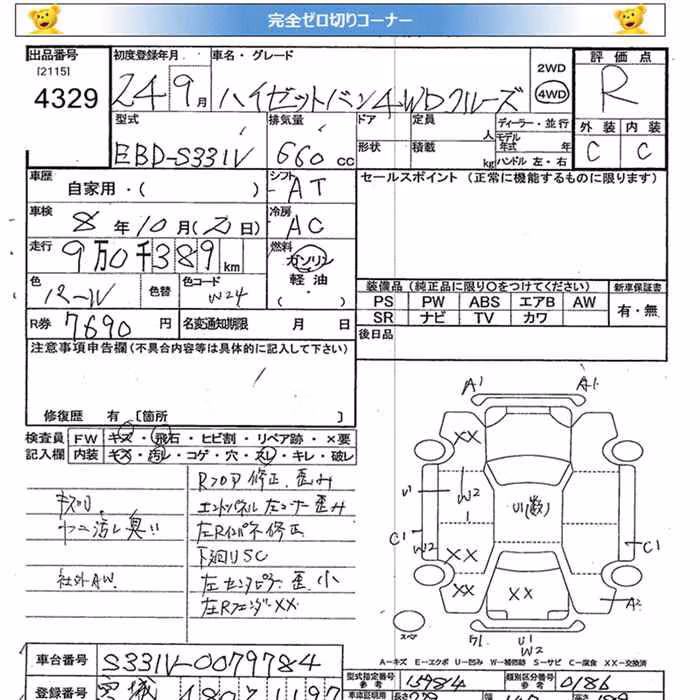 完全ゼロ切りコーナー
出品番号
[2115]
4329
初度登録年月
24 9月
車名・グレード
ハイゼットバン4WDクルーズ
2WD
4WD
評価点
R
型式
EBD-S331V
排気量
660 cc
ドア
形状
定員
人
積載
kg
ディーラー・並行
モデル
年式 年
ハンドル 左・右
外装
C
内装
C
車歴
自家用・( )
シフト
AT
セールスポイント (正常に機能するものに限ります)
車検
8年10月( 日)
冷房
AC
走行
9万0千389km
燃料
ガソリン
軽油
・( )
色
パールW
色替
色コード
W24
装備品 (純正品に限り○をつけてください)
新車保証書
PS PW ABS エアB AW
SR ナビ TV カワ
有・無
R券
7690円
名変通知期限 月 日
後日品
注意事項申告欄(不具合内容等は具体的に記入して下さい)
修復歴 有 [箇所 ]
検査員
記入欄
FW キズ・飛石・ヒビ割・リペア跡・×要
内装 キズ・汚レ・コゲ・穴・スレ・キレ・破レ
キズ凹
ヤニ汚レ臭い
社外AW
Rフロア修正、歪み
エンドパネル左コーナー歪み
左Rインパネ修正
下廻りSC
左センタピラー歪小
左RフェンダーXX
A1
A1
XX
W2
U1
U1(数)
C1
W2
XX
XX
XX
C1
A2
スペア
U1
W2
A-キズ E-エクボ U-凹み W-補修跡 S-サビ C-腐食 XX-交換済
車台番号
S331V-0079784
型式指定番号
参考
15984
類別区分番号
参考
0186
登録番号
宮城